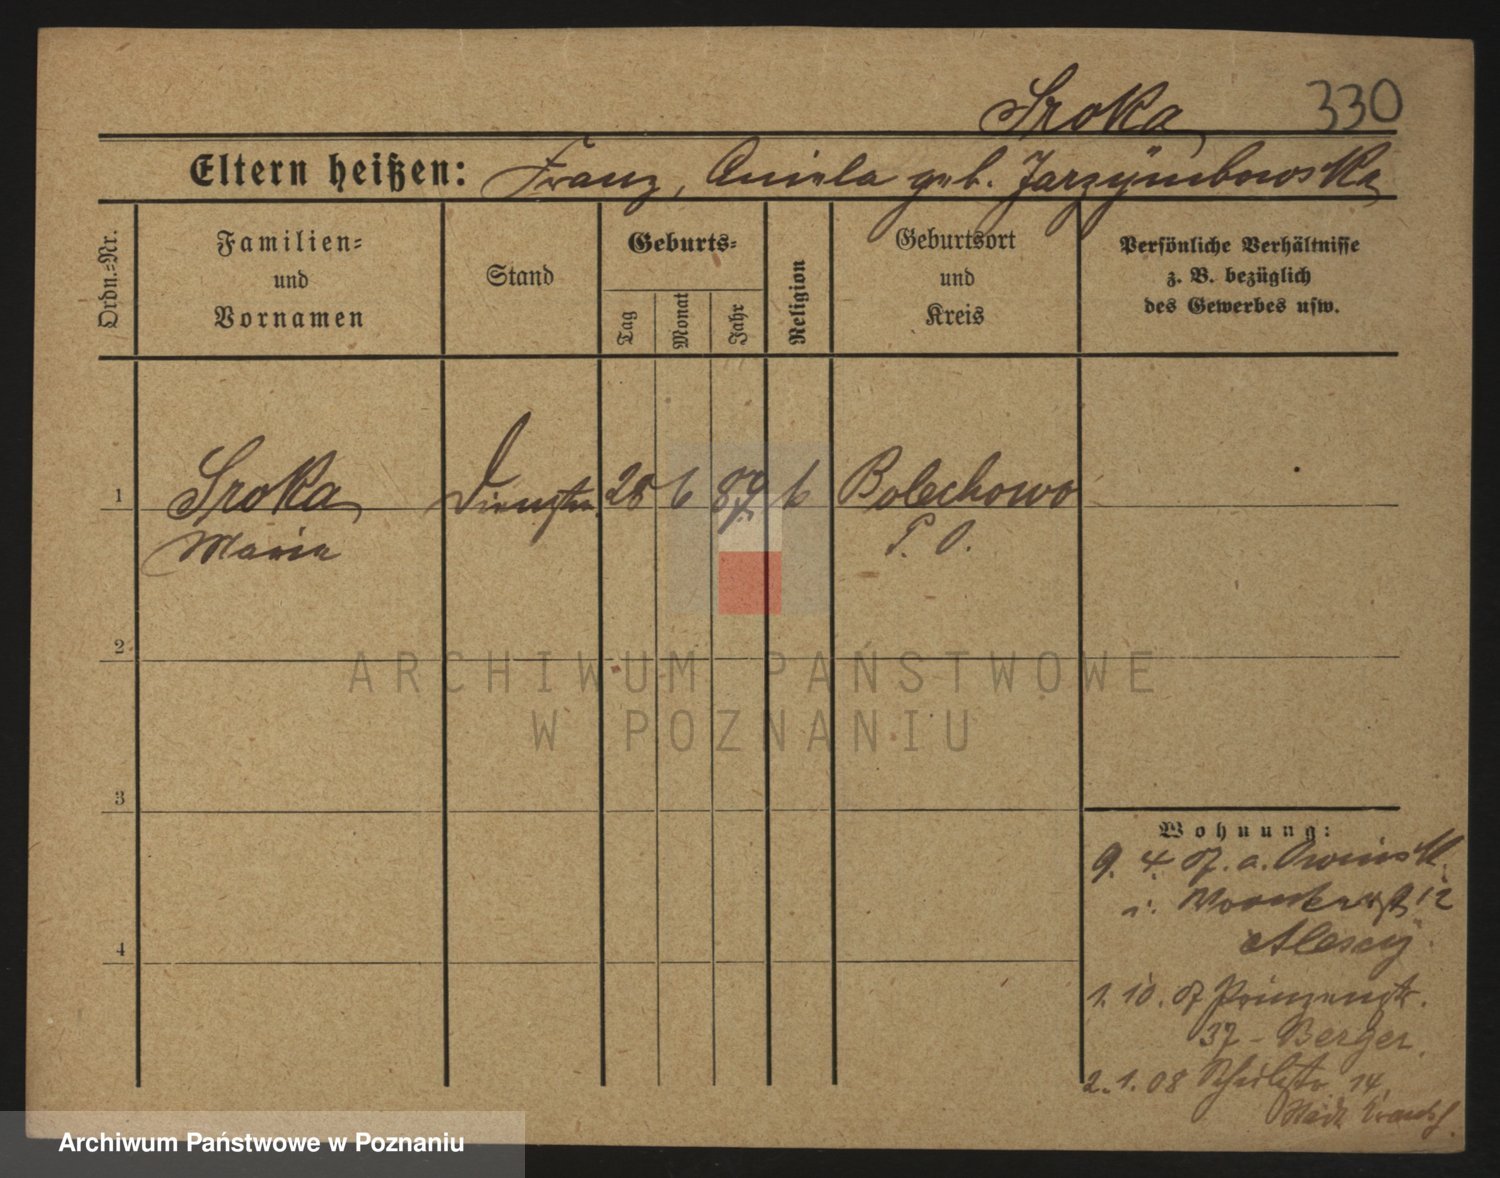 Sroka 330
Eltern heißen: Franz, Aniela geb. Jarzÿmbowska
Ordn.-Nr.
Familien-
und
Vornamen
Stand
Geburts-
Tag
Monat
Jahr
Religion
Geburtsort
und
Kreis
Persönliche Verhältnisse
z. B. bezüglich
des Gewerbes usw.
1 Sroka Dienstm. 28 6 87 k Bolechowo
Maria P. O.
2
3
4
Wohnung:
9. 4. 07. a. Owinsk
i. 12
1. 10. 07 Prinzenstr.
37 - Berger.
2. 1. 08 14
Städt. Krankh.
ARCHIWUM PAŃSTWOWE
W POZNANIU
Archiwum Państwowe w Poznaniu